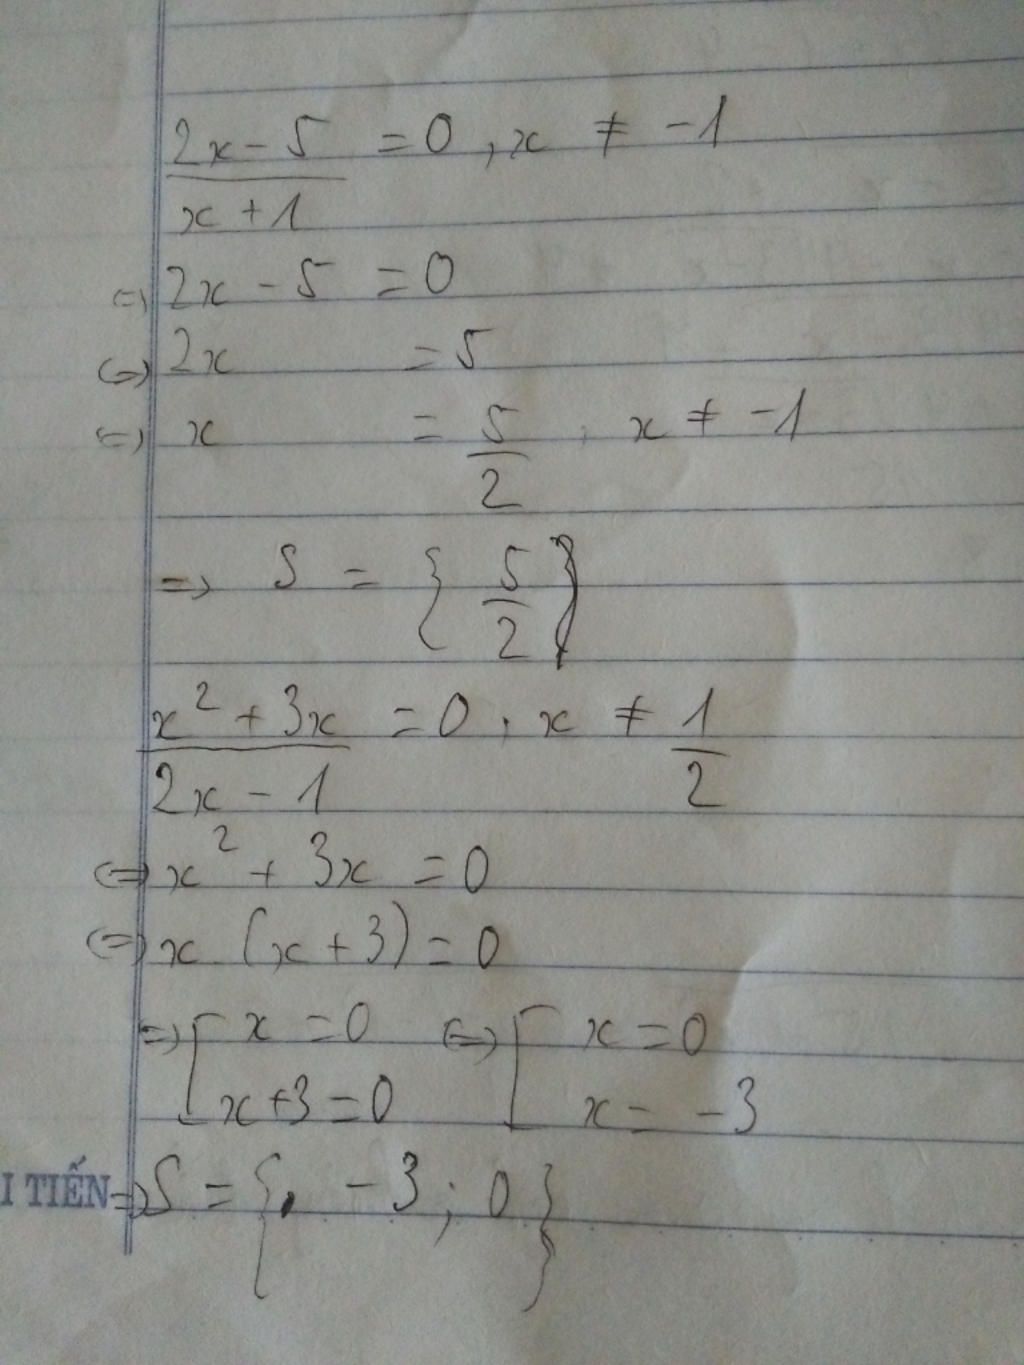 2x - 5 / x + 1 = 0, x ≠ -1
⇔ 2x - 5 = 0
⇔ 2x = 5
⇔ x = 5/2, x ≠ -1
⇒ S = { 5/2 }
x² + 3x / 2x - 1 = 0, x ≠ 1/2
⇔ x² + 3x = 0
⇔ x (x + 3) = 0
⇒ [ x = 0 ⇔ [ x = 0
x + 3 = 0 x = -3
I TIẾN ⇒ S = { -3 ; 0 }